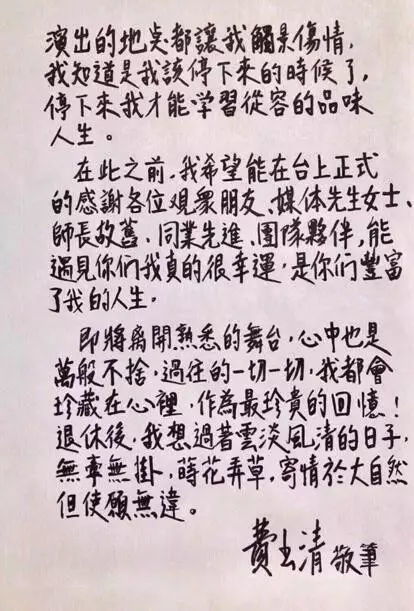 演出的地点都讓我觸景傷情,
我知道是我該停下來的時候了,
停下來我才能学習從容的品味
人生。
在此之前,我希望能在台上正式
的感謝各位观眾朋友、媒体先生女士、
師長故舊、同業先進、團隊夥伴,能
遇見你们我真的很幸運,是你们豐富
了我的人生.
即將离開熟悉的舞台,心中也是
萬般不捨,過往的一切一切,我都會
珍藏在心裡,作為最珍貴的回憶!
退休後,我想過著雲淡風清的日子,
無牽無掛,蒔花弄草,寄情於大自然
但使願無違。
費玉清 敬筆